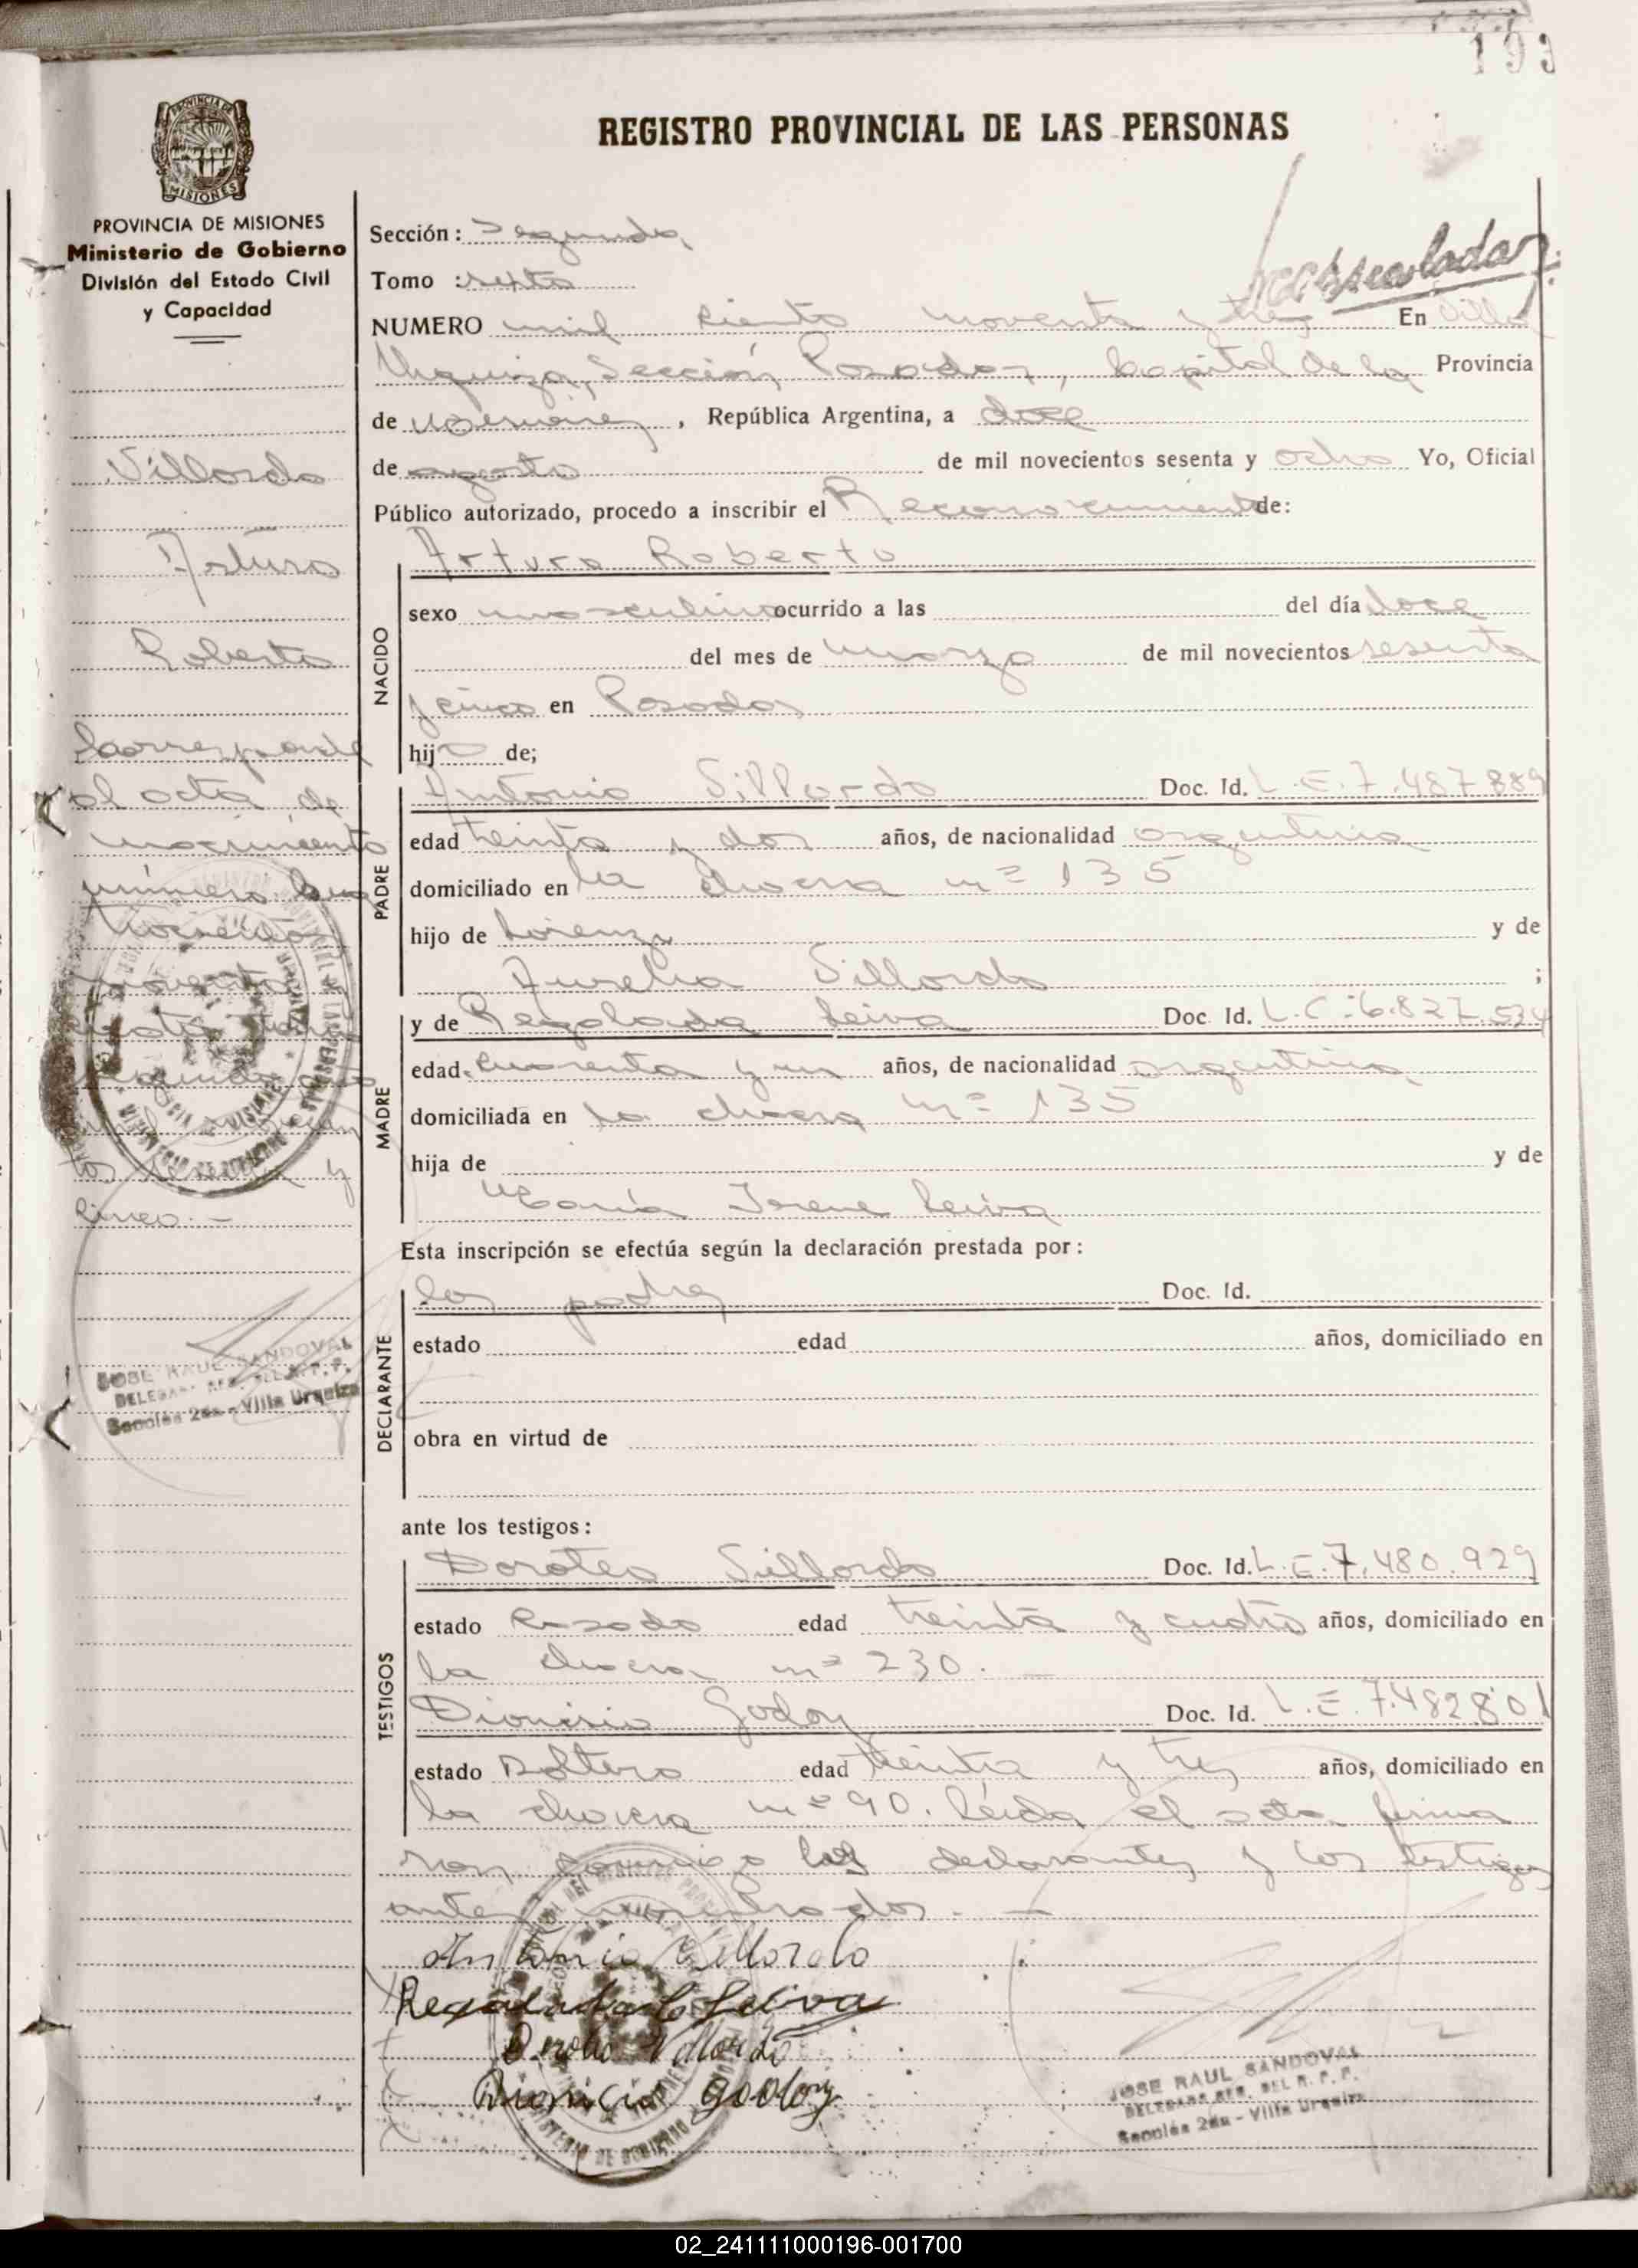 193
REGISTRO PROVINCIAL DE LAS PERSONAS
MISIONES
PROVINCIA DE MISIONES
Ministerio de Gobierno
División del Estado Civil
y Capacidad
Villordo
Arturo
Roberto
Corresponde
al acta de
nacimiento
número
novecientos
noventa
tos sesenta y
cinco.-
JOSE RAUL SANDOVAL
Sección 2da - Villa Urquiza
Sección: Segunda
Tomo : sexto
NUMERO mil ciento noventa y tres En Villa
Urquiza, Sección Posadas, Capital de la Provincia
de Misiones, República Argentina, a doce
de agosto de mil novecientos sesenta y ocho Yo, Oficial
Público autorizado, procedo a inscribir el Reconocimiento de:
NACIDO
Arturo Roberto
sexo masculino ocurrido a las del día doce
del mes de marzo de mil novecientos sesenta
y cinco en Posadas
hijo de;
PADRE
Antonio Villordo Doc. Id. L.E.7.487.889
edad treinta y dos años, de nacionalidad argentina
domiciliado en la chacra nº 135
hijo de Lorenzo y de
Aurelia Villordo ;
MADRE
y de Regalada Leiva Doc Id. L.C.:6.827.534
edad cuarenta y un años, de nacionalidad argentina
domiciliada en la chacra nº 135
hija de y de
María Irene Leiva
Esta inscripción se efectúa según la declaración prestada por:
DECLARANTE
los padres Doc. Id.
estado edad años, domiciliado en
obra en virtud de
ante los testigos:
TESTIGOS
Doroteo Villordo Doc. Id. L.E.7.480.929
estado casado edad treinta y cuatro años, domiciliado en
la chacra nº 230.-
Dionisio Godoy Doc. Id. L.E. 7.482801
estado soltero edad treinta y tres años, domiciliado en
la chacra nº 90. Leída el acta firma
ron conmigo los declarantes y los testigos
antes nombrados.-
Antonio Villordo
Regalada C Leiva
Doroteo Villordo
Dionicio godoy
JOSE RAUL SANDOVAL
DELEGADO DEL R. P. P.
Sección 2da - Villa Urquiza
02_241111000196-001700